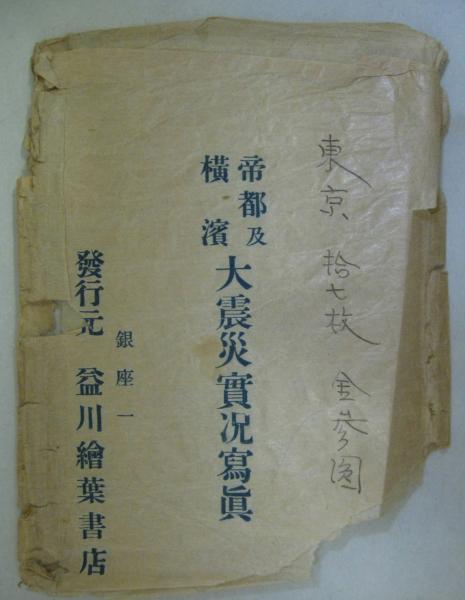 東京 拾七枚 金参圓
帝都及
橫濱
大震災實况寫眞
銀座一
發行元 益川繪葉書店